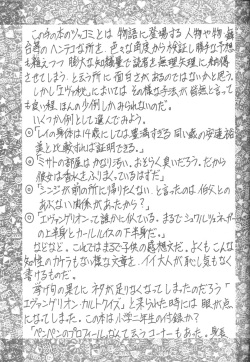 この手の本のツッコミとは物語に登場する人物や物、舞
台等のヘンテコな所を、色々な角度から検証し勝手な予想
も組えつつ膨大な知識量で読者を無理矢理に納得
させてしまう、と云う所に面白さがあるのではないかと思う。
しかし「エヴァ秋」にはその様な手法が皆無と言って
も良い程ほんの少例しかみられないのだ。
いくつか例として選んでみよう。
「レイの身体は什歳にしては豊満すぎる。同い歳の安達祐
美と比較すれば証明できる。」
「ミサトの部屋はかなり汚い。おそらく臭いだろう。だから
彼女は香水をふりまくっているはずだ。」
「シンジが前の所に帰りたくない、と言ったのは伯父との
あぶない関係があったから?」
「エヴァンゲリオンって誰かに似ている。まるでシュワルツェネッガー
の上半身とカールルイスの下半身だ。」
などなど。これではまるで子供の感想文だ。よくもこんな
知性のかけらもない様な文章を、イイ大人が恥し気もなく
書けるものだ。
当初の果てに、ネタが足りなくなってしまったのだろう「
エヴァンゲリオン・カルトクイズ」と来られた時には眼が点
になってしまった。この本は小学二年生の付録か?
「ペンペンのプロフィール」なんて云うコーナーもあった。身長